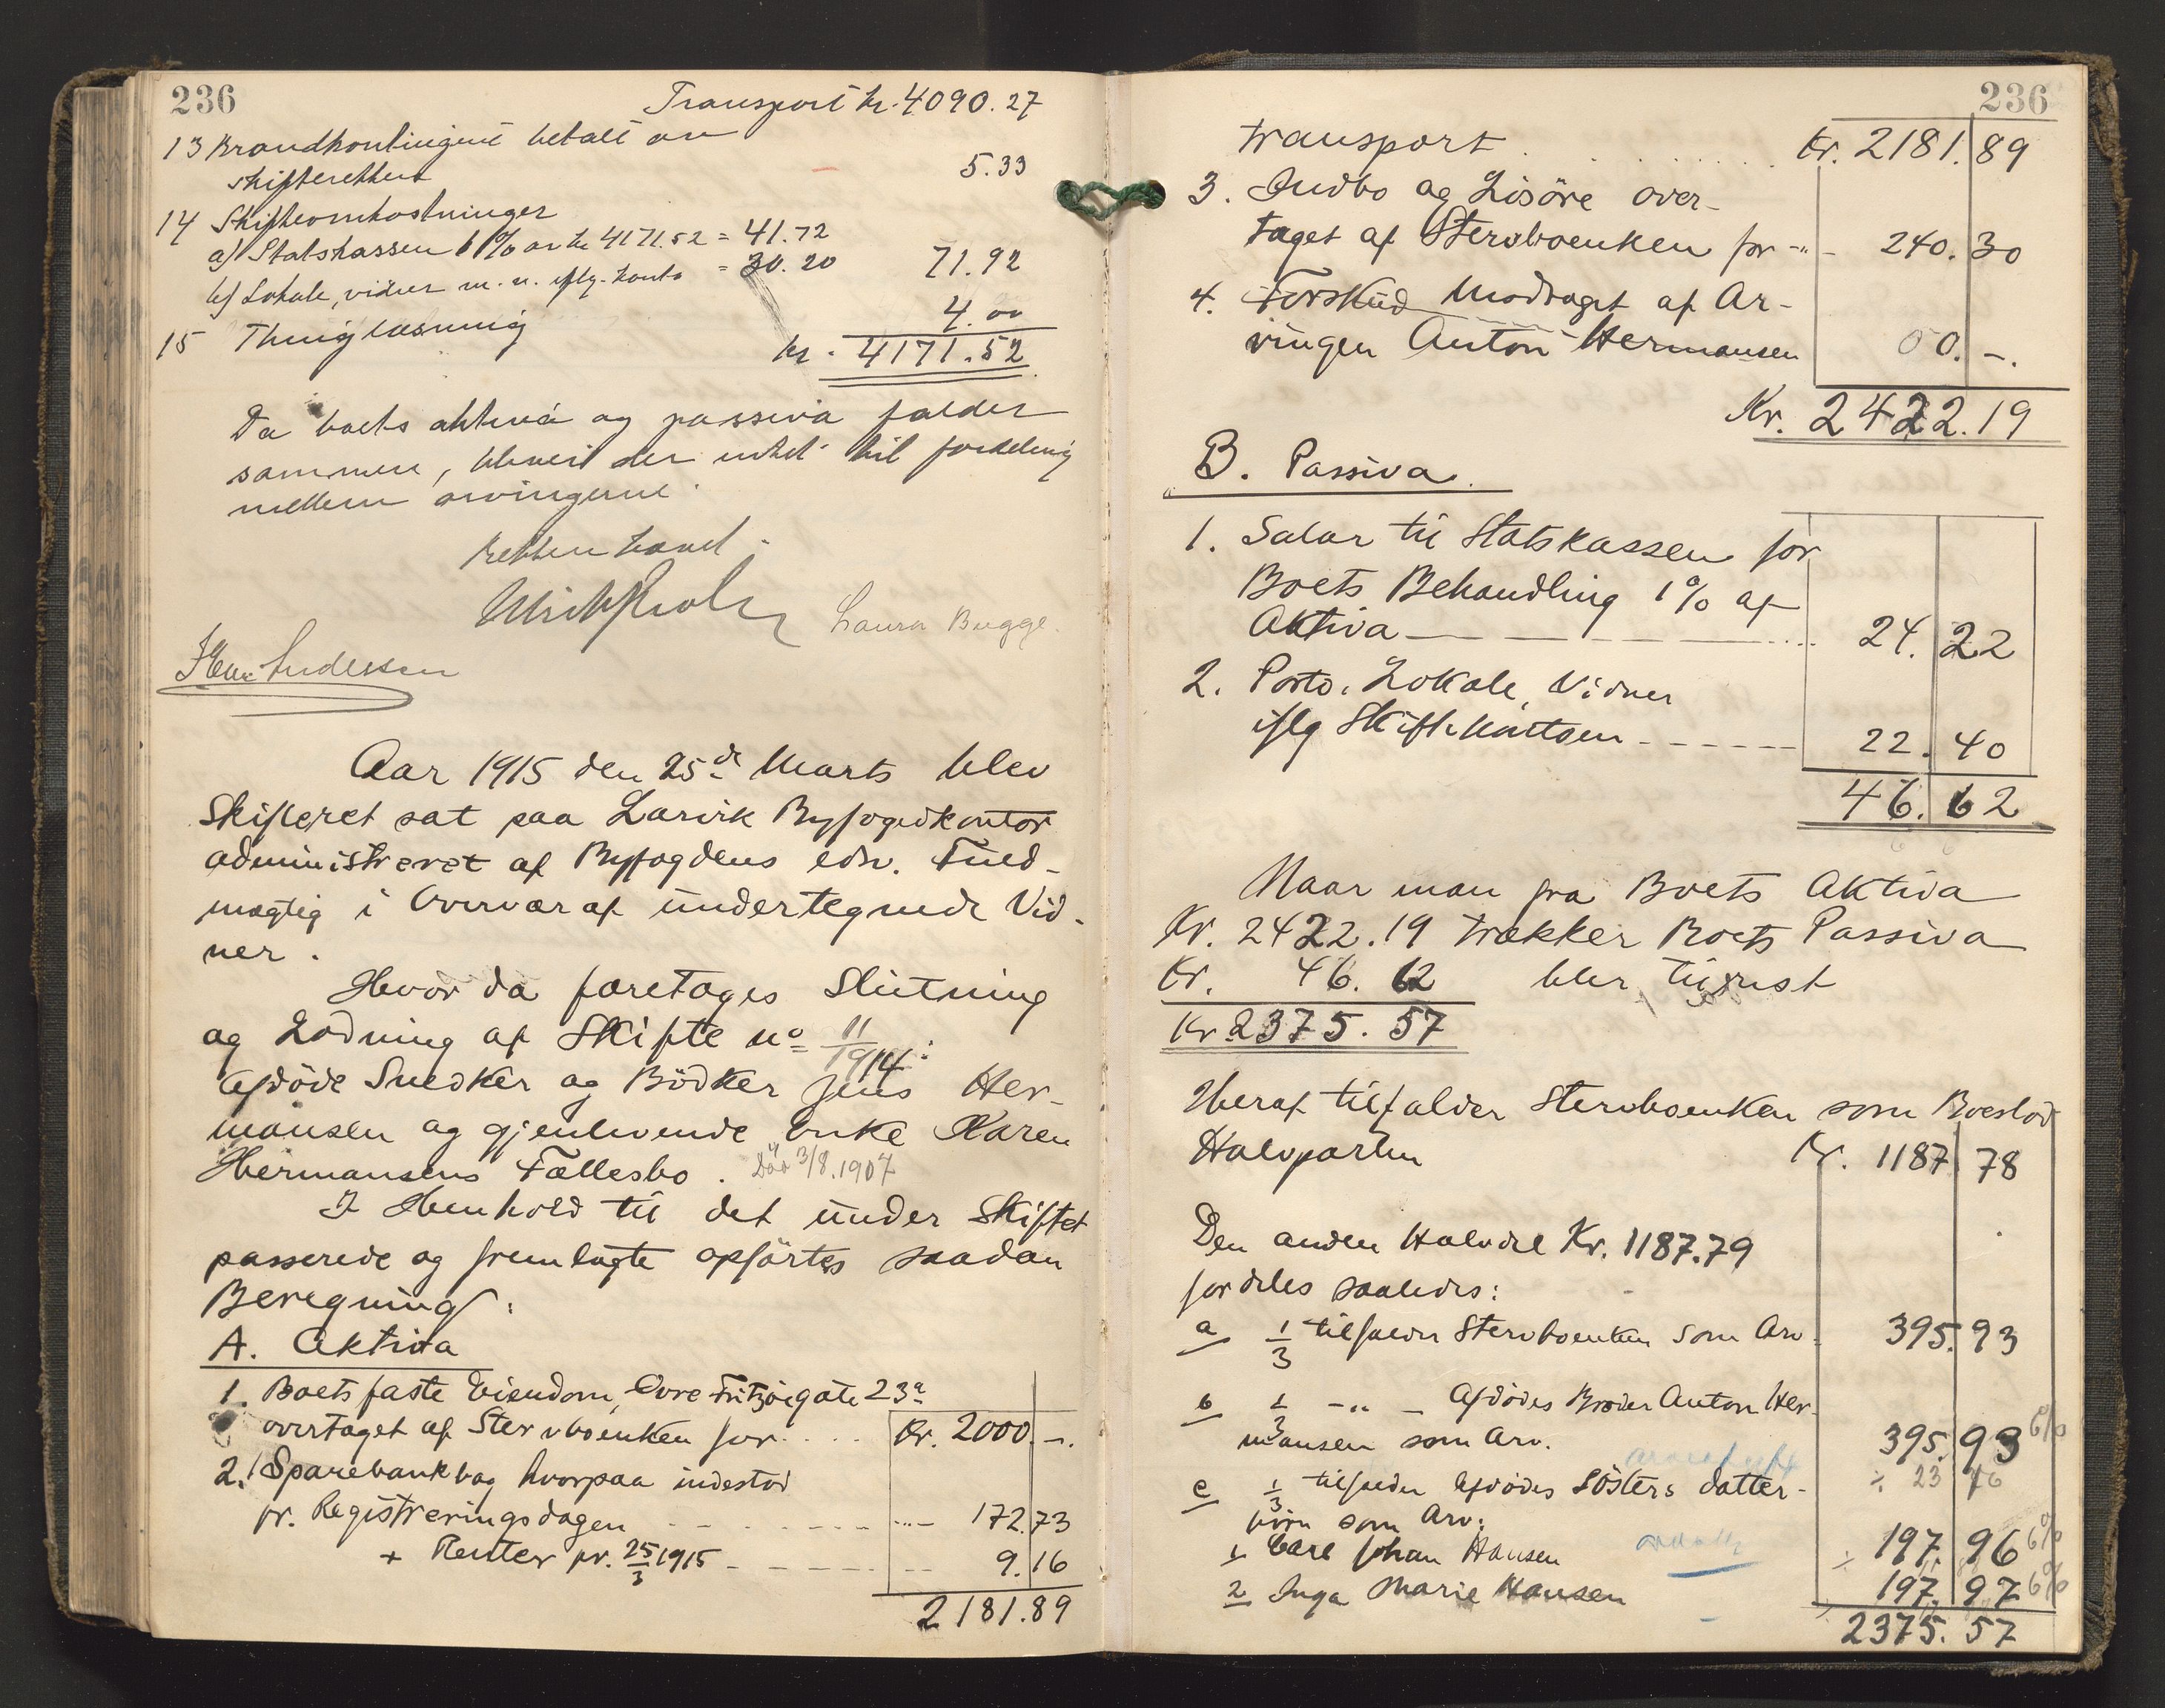 236
Transport kr. 4090.27
13 Brandkontingent betalt av
skifteretten 5.33
14 Skifteomkostninger
a) Statskassen 1% av kr 4171.52 = 41.72
b) Lokale, vidner m. v. iflg. konto = 30.20 71.92
15 Thinglæsning 4.00
kr. 4171.52
Da boets aktiva og passiva falder
sammen, blever der intet til fordeling
mellem arvingerne.
Retten hævet.
Laura Bugge.
Herm. Andersen
Aar 1915 den 25de Marts blev
Skifteret sat paa Larvik Byfogedkontor
administreret af Byfogdens edsv. Fuld-
mægtig i Overvær af undertegnede Vid-
ner.
Hvor da foretages Slutning
og Lodning af Skifte no 11/1914:
Afdøde Snedker og Bødker Jens Her-
mansen og gjenlevende Enke Karen
Hermansens Fællesbo. Død 3/8.1907
I Henhold til det under Skiftet
passerede og fremlagte opførtes saadan
Beregning:
A. Aktiva
1. Boets faste Eiendom, Øvre Fritzøegate 23a
overtaget af Stervboenken for .... Kr. 2000.-.
2. Sparebankbog hvorpaa indestod
pr. Registreringsdagen 172.73
+ Renter pr. 25/3 1915 9.16
2181.89
236
Transport Kr. 2181.89
3. Indbo og Løsøre over-
taget af Stervboenken for -"- 240.30
4. Forskud modtaget af Ar-
vingen Anton Hermansen 00.-.
Kr. 2422.19
B. Passiva.
1. Salær til Statskassen for
Boets Behandling 1% af
Aktiva 24.22
2. Porto, Lokale, Vidner
iflg Skiftekontoen 22.40
46.62
Naar man fra Boets Aktiva
Kr. 2422.19 trækker Boets Passiva
Kr. 46.62 blir tilrest
Kr 2375.57
Heraf tilfalder Stervboenken som Boeslod
Halvparten Kr. 1187.78
Den anden Halvdel Kr. 1187.79
fordeles saaledes:
a 1/3 tilfalder Stervboenken som Arv. 395.93
b 1/3 -"- Afdødes Broder Anton Her-
mansen som Arv. 395.93 6%
÷ 23 76
c 1/3 tilfalder Afdødes Søsters Datter-
børn som Arv:
1 Carl Johan Hansen 197.96 6%
2 Inga Marie Hansen 197.97 6%
2375.57